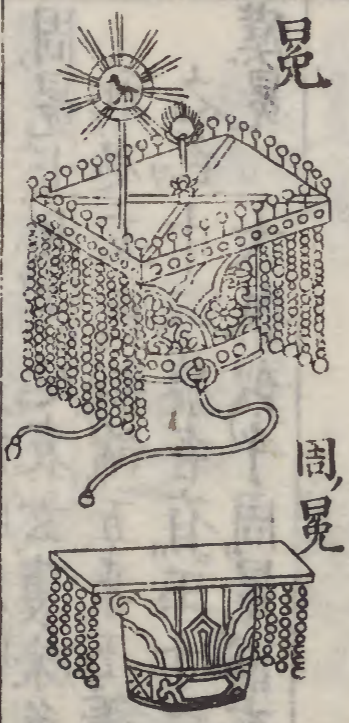 冕
周冕